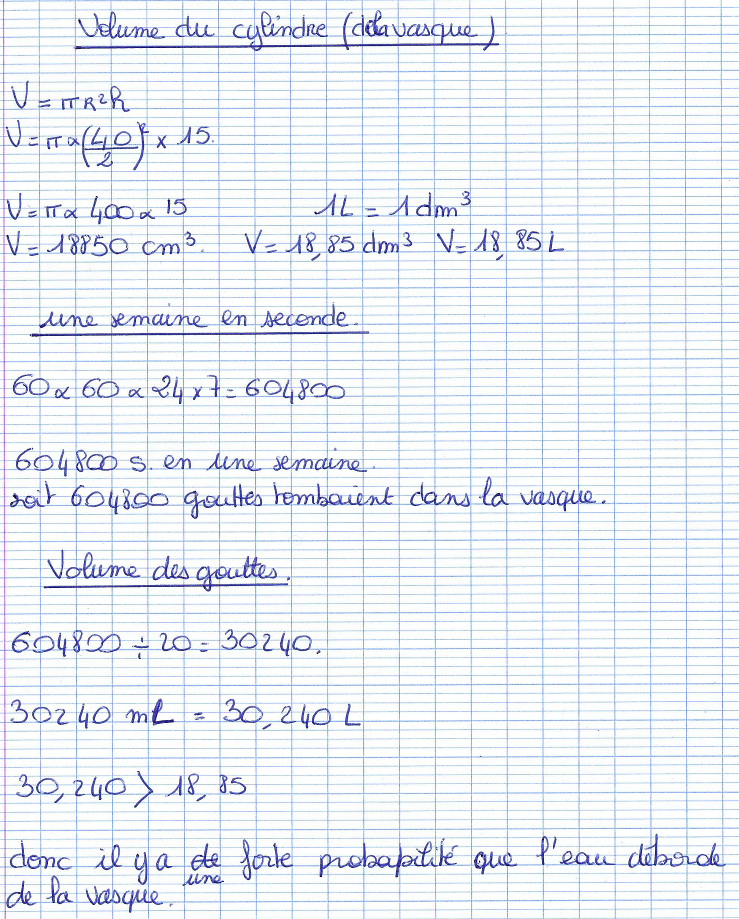 Volume du cylindre (de la vasque)
V = πR²h
V = π × (40/2)² × 15.
V = π × 400 × 15 1L = 1 dm³
V = 18850 cm³. V = 18,85 dm³ V = 18,85 L
une semaine en seconde.
60 × 60 × 24 × 7 = 604800
604800 s. en une semaine.
soit 604800 gouttes tombaient dans la vasque.
Volume des gouttes.
604800 ÷ 20 = 30240.
30240 mL = 30,240 L
30,240 > 18,85
donc il y a une forte probapilité que l'eau déborde
de la vasque.